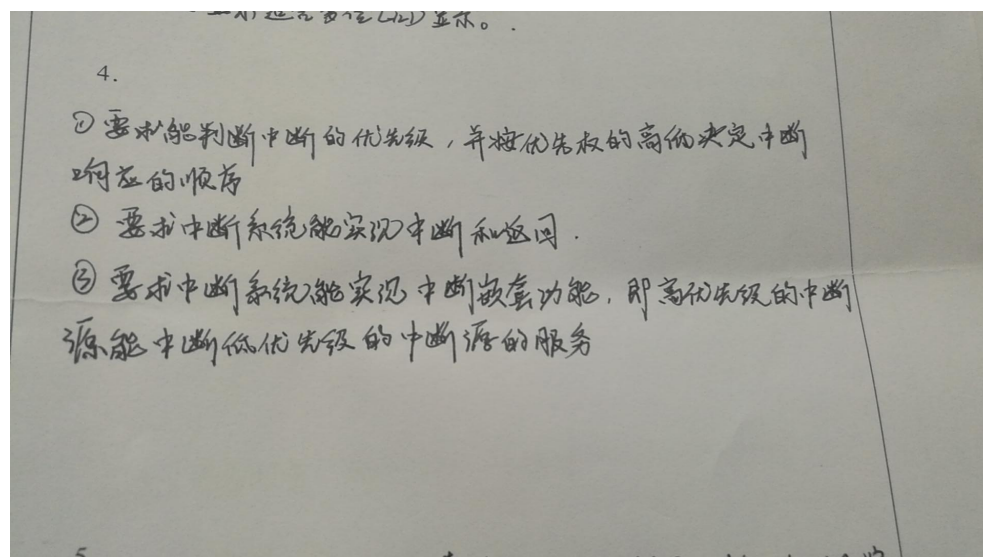 LED显示。
4.
① 要求能判断中断的优先级，并按优先权的高低决定中断
响应的顺序
② 要求中断系统能实现中断和返回.
③ 要求中断系统能实现中断嵌套功能，即高优先级的中断
源能中断低优先级的中断源的服务
5